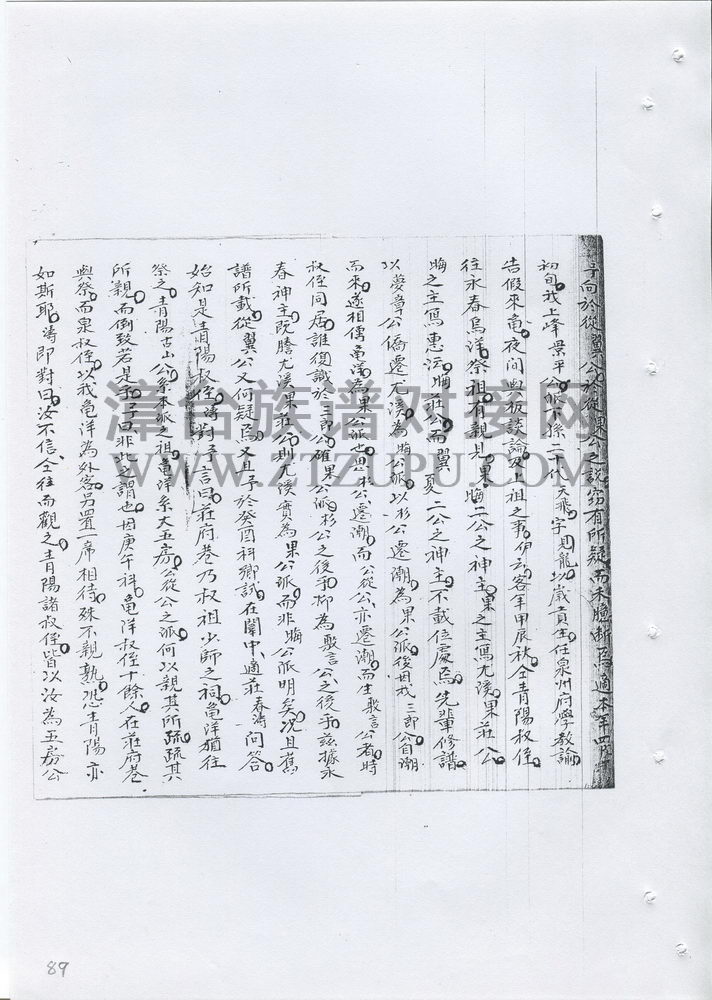 予向於從翼公不從果公之說窃有所疑而未臆斷焉適本年四月
初旬我上峰景平公派下孫二十代天飛字見龍以歲貢生任泉州府學教諭
告假來龜夜間與板談論及上祖之事伊云客年甲辰秋仝青陽叔侄
往永春烏洋祭祖有親見果晦二公之神主果之主寫尤溪果莊公
晦之主寫惠沄晦莊公而翼夏二公之神主不載位處焉先輩修譜
以夢章公僑遷尤溪為晦公派以杉公遷潮為果公派後因我三郎公自潮
而來遂相傳龜洋為果公派也與杉公遷潮而公從公亦遷潮而生毅言公者時
叔侄同居誰復識於三郎公確果公派杉公之後乎抑為毅言公之後乎茲據永
春神主既謄尤溪果莊公則尤溪實為果公派而非晦公派明矣况且舊
譜所載從翼公又何疑焉又且予於癸酉科鄉試在闈中適莊春濤問答
始知是青陽叔侄濤對予言曰莊府巷乃叔祖少師之祠龜洋猶往
祭之青陽古山公系本派之祖龜洋系大五房公從公之派何以親其所疏疏其
所親而倒致若是乎予曰非此之謂也因庚午科龜洋叔侄十餘人在莊府巷
與祭而泉叔侄以我龜洋為外客另置一席相待殊不親熟恐青陽亦
如斯耶濤即對曰汝不信仝往而觀之青陽諸叔侄皆以汝為五房公
漳台族谱对接网
WWW.ZTZUPU.COM
89